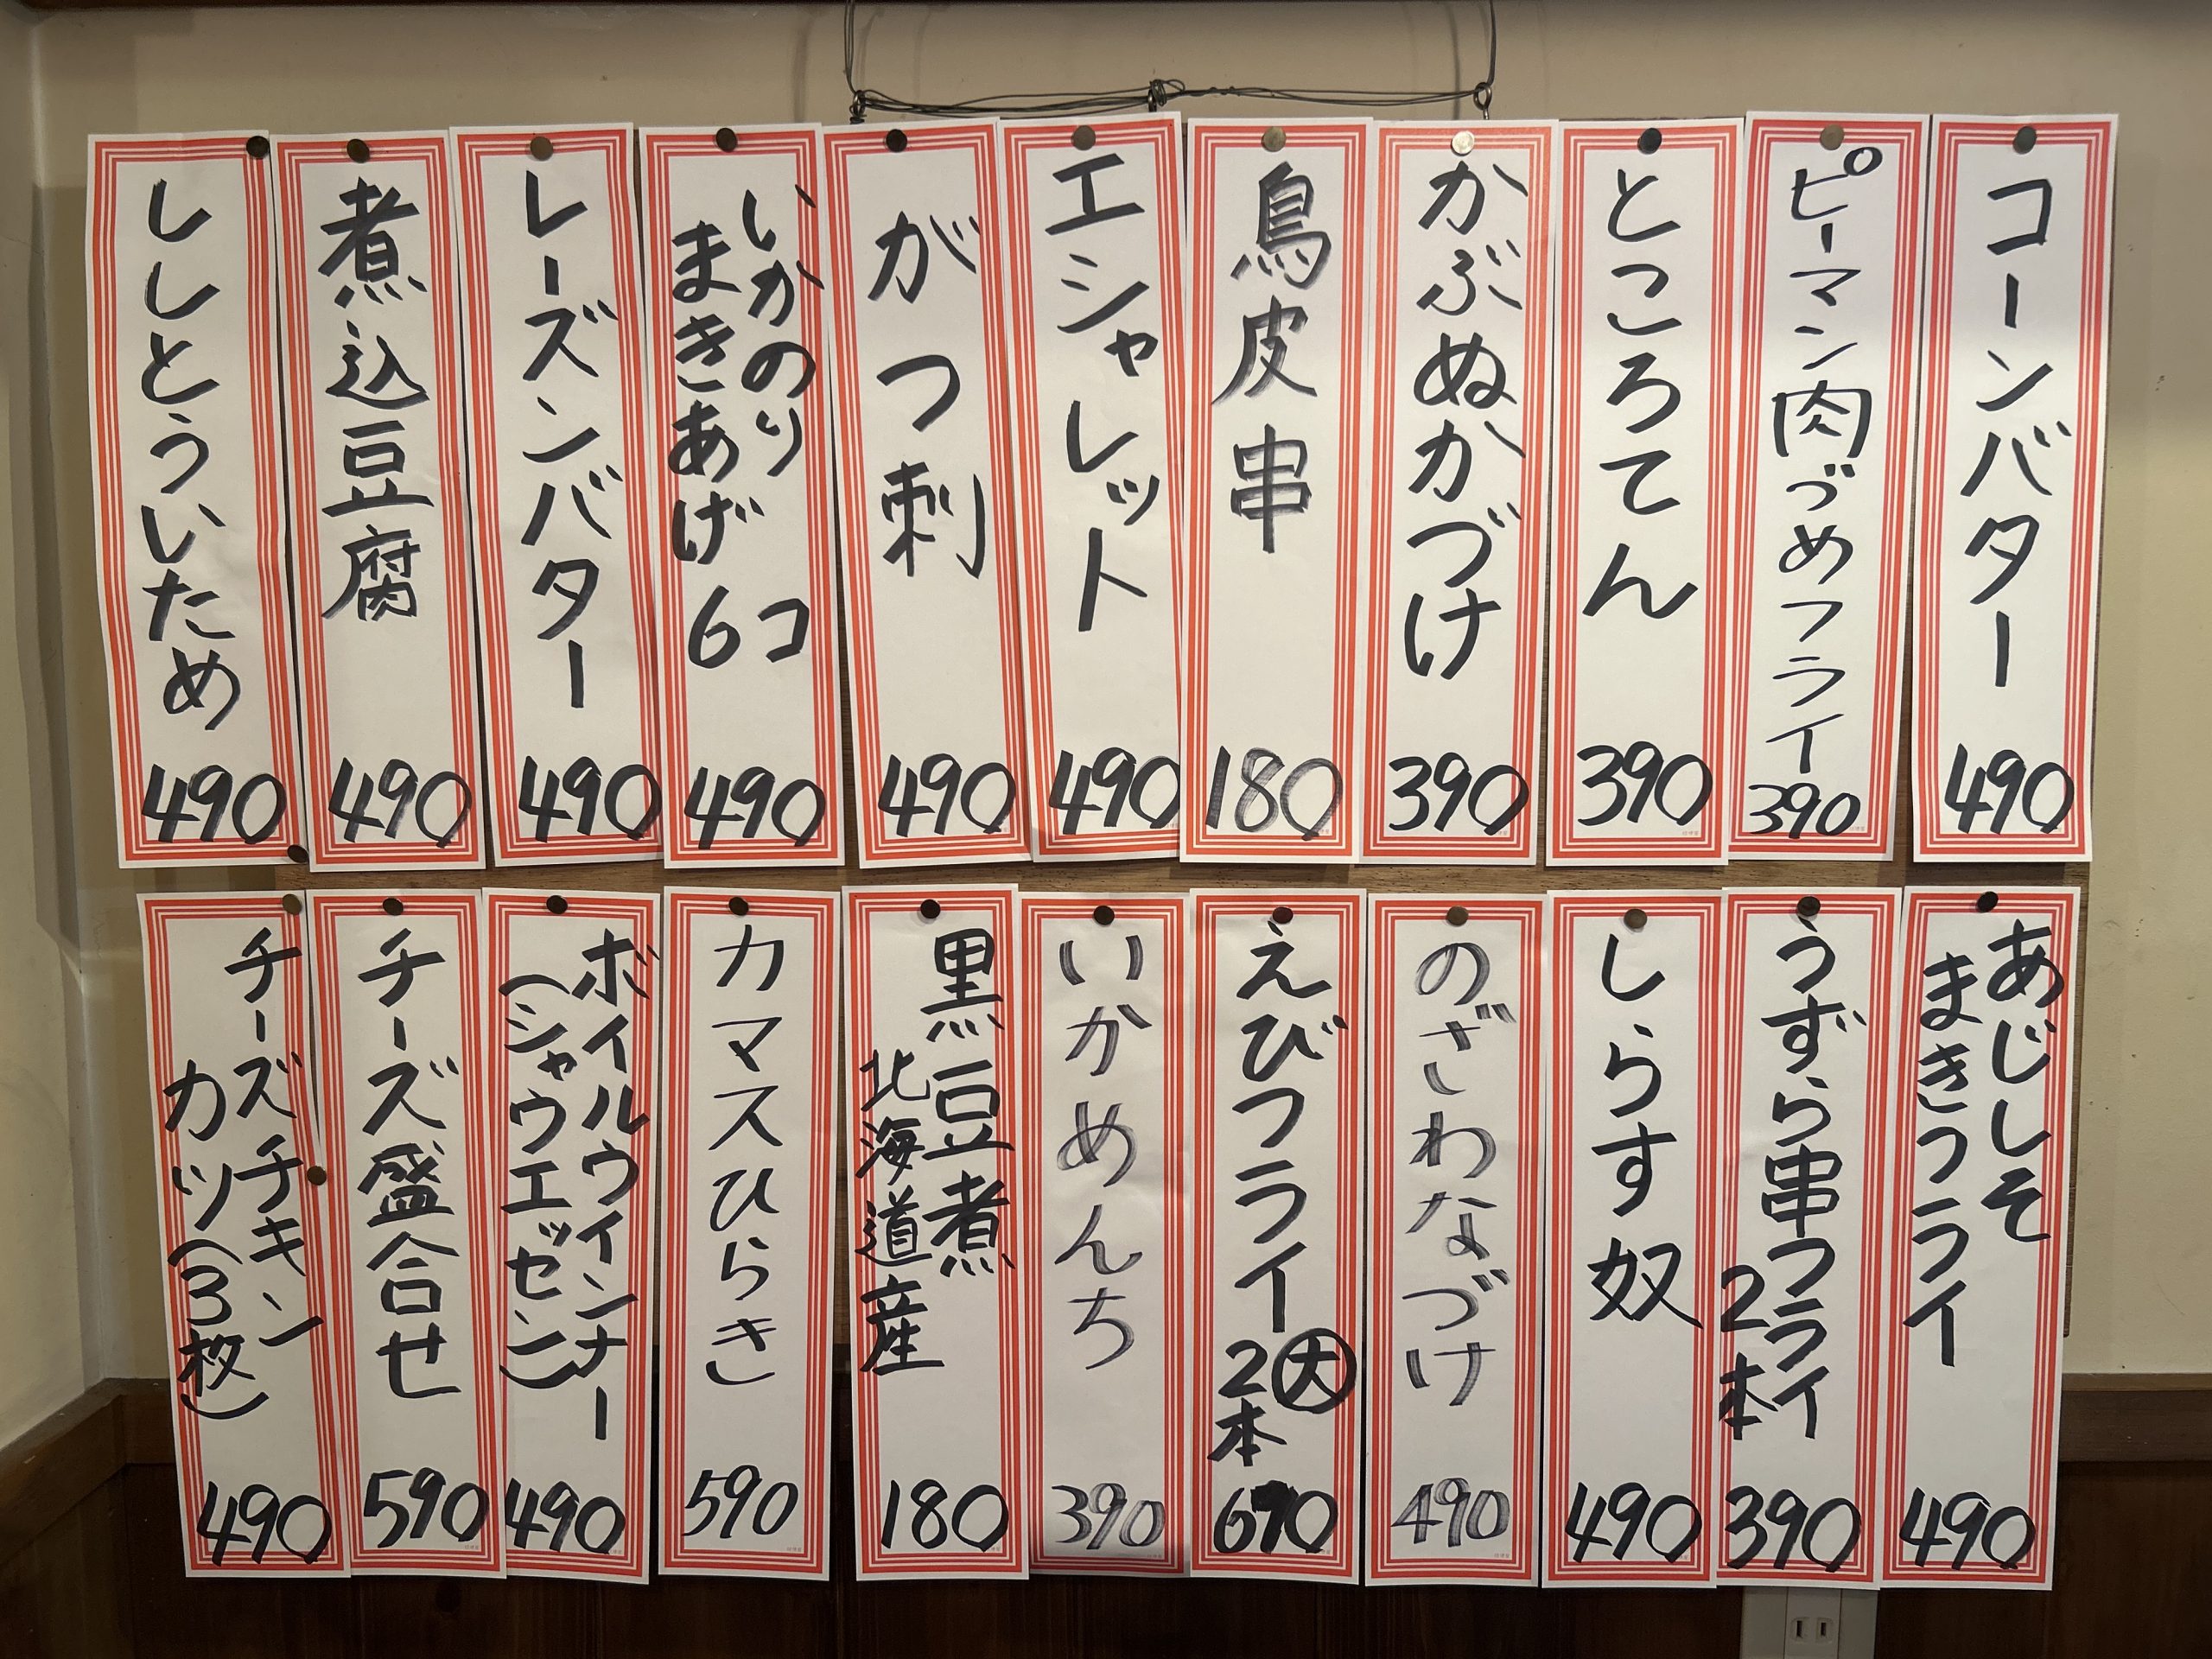 コーンバター
490
ピーマン肉づめフライ
390
ところてん
390
かぶぬかづけ
390
鳥皮串
180
エシャレット
490
がつ刺
490
いかのり
まきあげ
6コ
490
レーズンバター
490
煮込豆腐
490
ししとういため
490
あじしそ
まきフライ
490
うずら串フライ
2本
390
しらす奴
490
のざわなづけ
490
えびフライ
大
2本
690
いかめんち
390
黒豆煮
北海道産
180
カマスひらき
590
ボイルウインナー
(シャウエッセン)
490
チーズ盛合せ
590
チーズチキン
カツ(3枚)
490